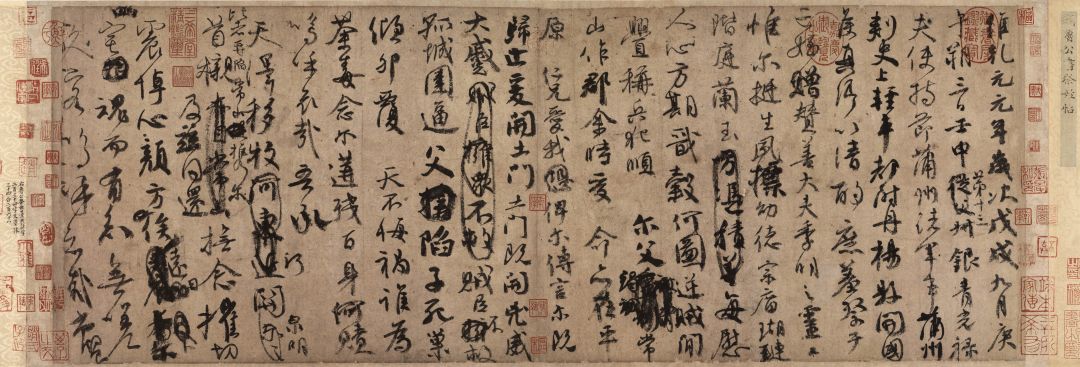 魯公書祭姪帖
維乾元元年歲次戊戌九月庚
午朔三日壬申第十三從父 銀青光祿
夫使持節蒲州諸軍事蒲州
刺史上輕車都尉丹楊縣開國
侯真卿以清酌庶羞祭于
亡姪贈贊善大夫季明之靈曰
惟爾挺生夙標幼德宗廟瑚璉
階庭蘭玉方憑積善每慰
人心方期戩穀何圖逆賊間
釁稱兵犯順 爾父竭誠常
山作郡余時受 命亦在平
原仁兄愛我俾爾傳言爾既
歸止爰開土門土門既開凶威
大蹙賊臣擁眾不救賊臣不救
孤城圍逼父陷子死巢
傾卵覆 天不悔禍誰為
荼毒念爾遘殘百身何贖
嗚乎哀哉吾承
天澤移牧河東近河關泉明
比者再陷常山攜爾
首櫬亦自常山及茲同還撫念摧切
震悼心顏方俟遠日卜爾
幽宅魂而有知無嗟
久客嗚呼哀哉尚饗